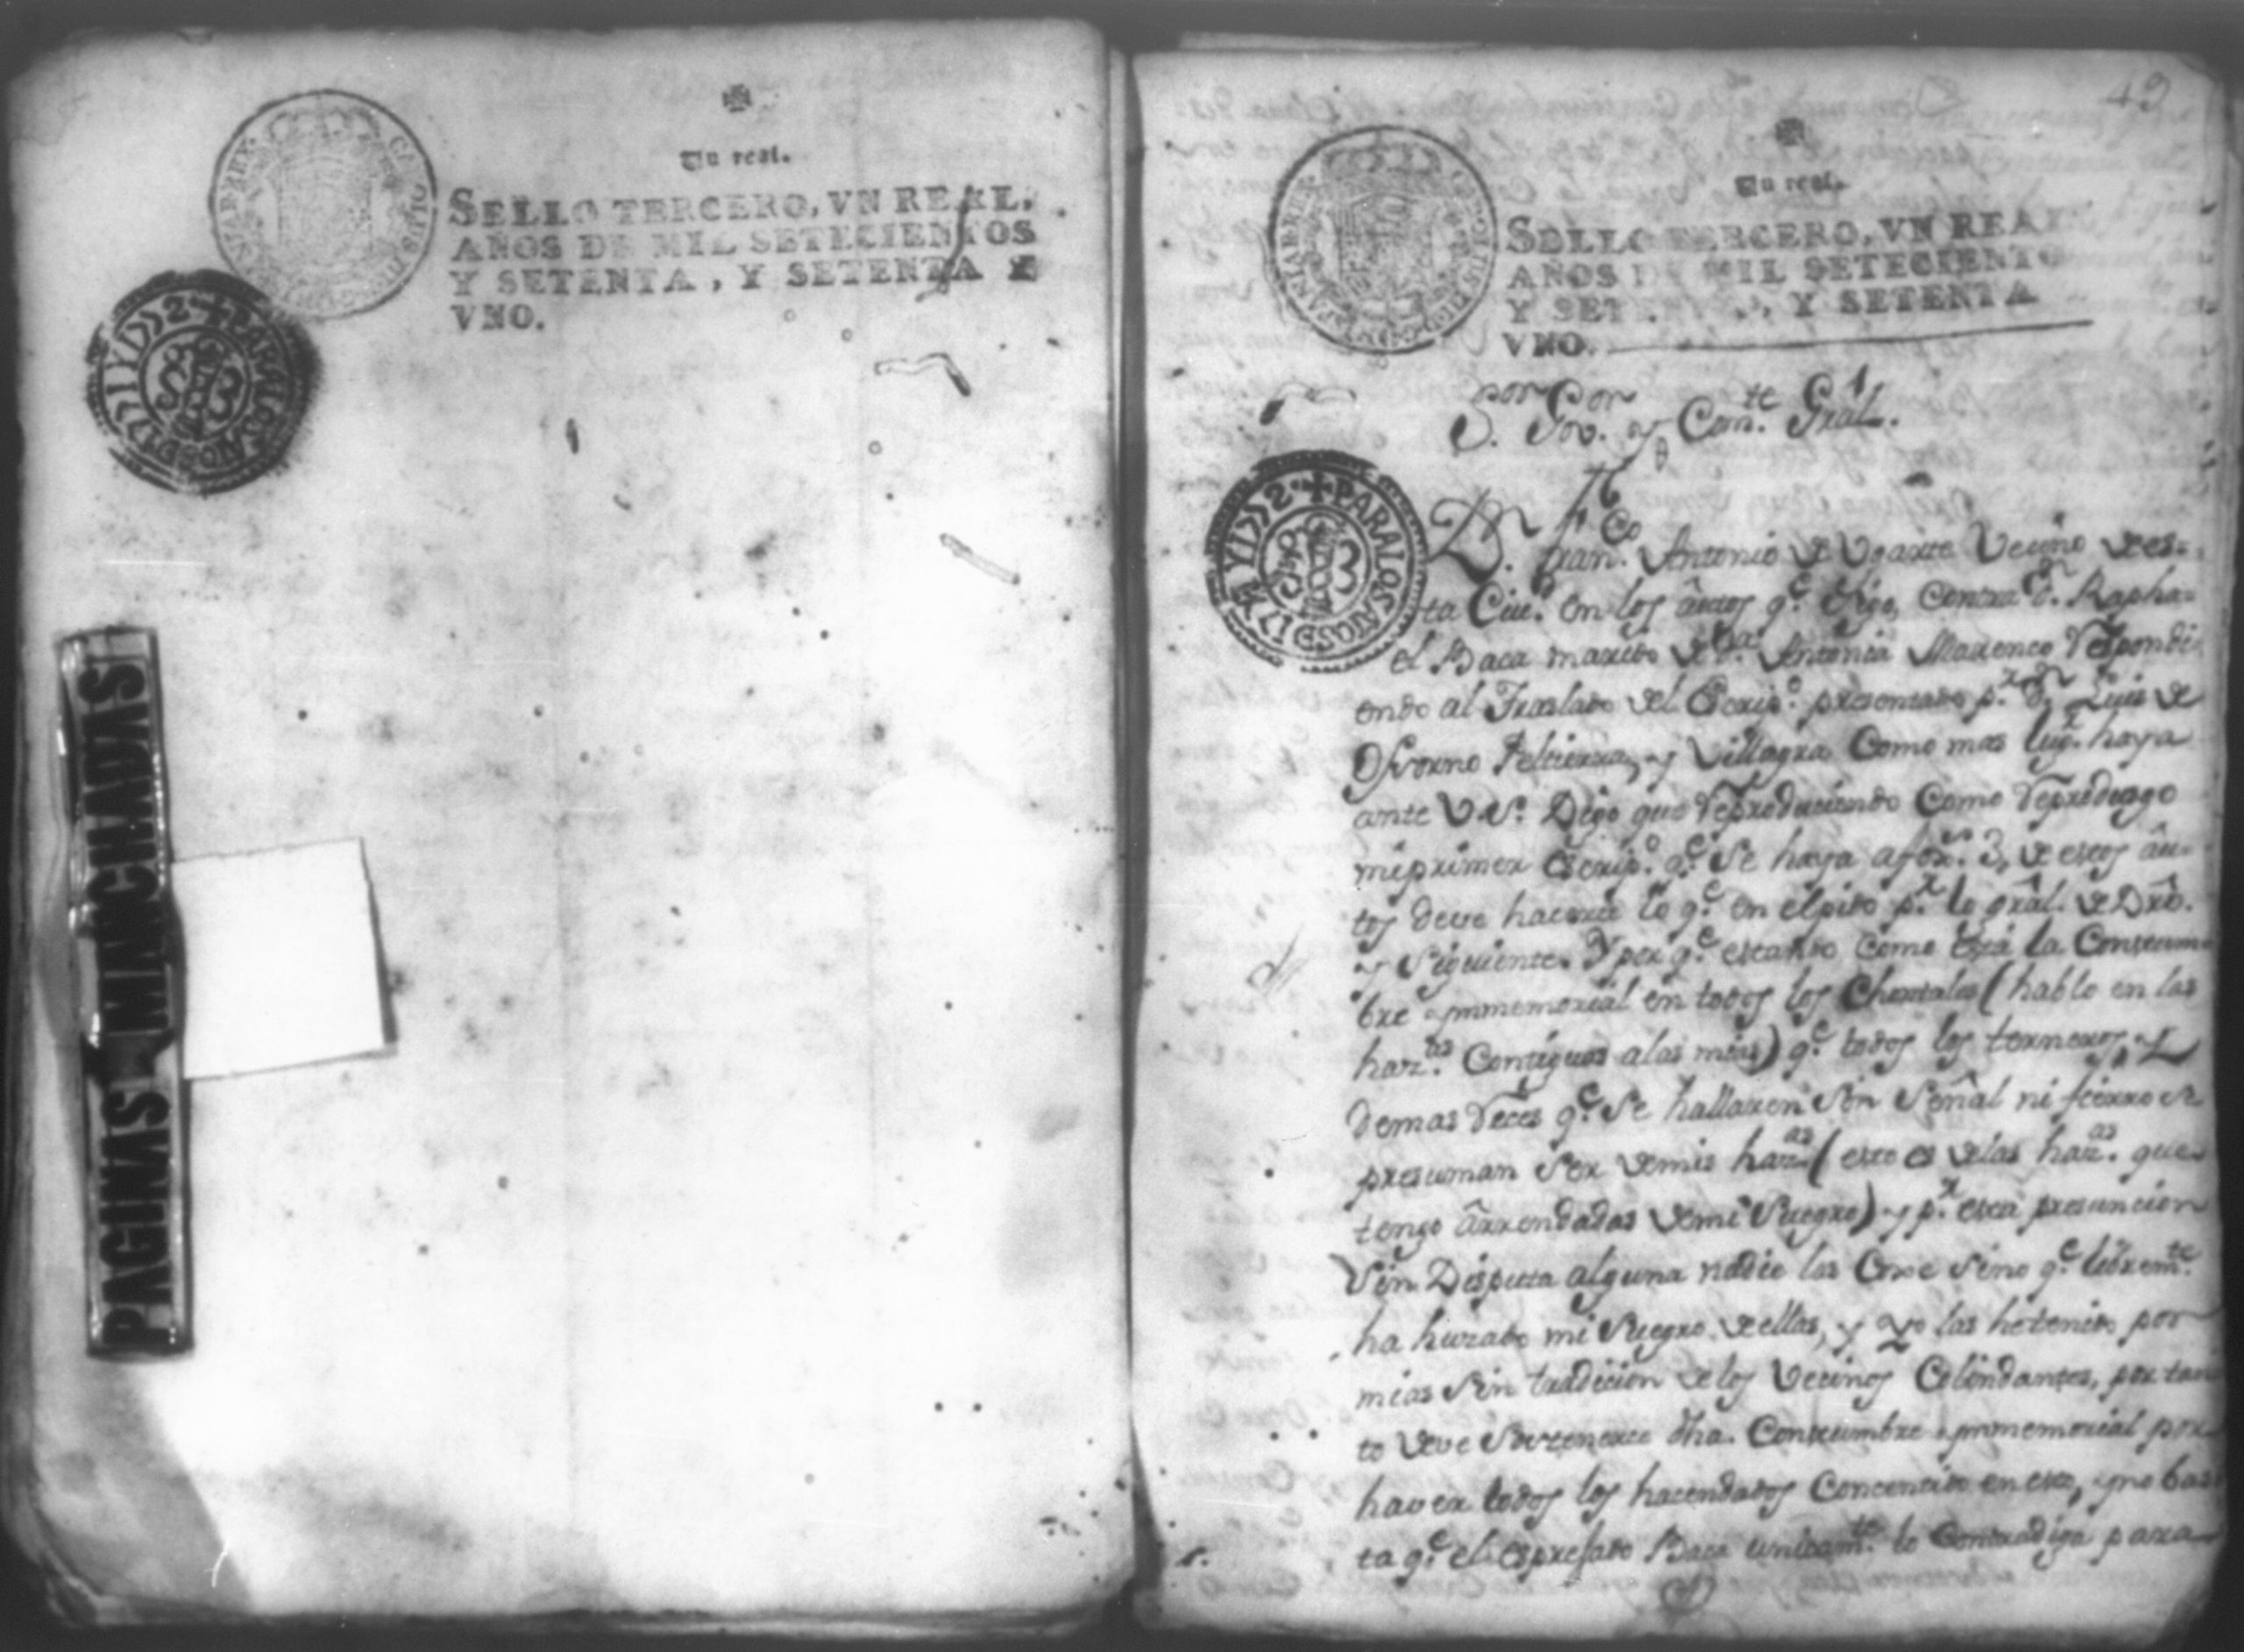 Un real.
SELLO TERCERO, VN REAL,
AÑOS DE MIL SETECIENTOS
Y SETENTA, Y SETENTA Y
VNO.
CAROLUS III
+ PARA LOS AÑOS DE 1771 Y 1772
PAGINAS MANCHADAS
49
Un real.
SELLO TERCERO, VN REA
AÑOS DE MIL SETECIENTO
Y SET Y SETENTA
VNO.
+ PARA LOS AÑOS DE 1771 Y 1772
S.or Gov.or y Com.te Gral.
Dn Fran.co Antonio de Ugarte Vecino de es-
ta Ciu.d en los autos q.e sigo, Contra Dn. Rapha-
el Baca marido de D.a Antonia Marenco respondi-
endo al Traslado del Escrip.o presentado p.r Dn Luis de
Osorno y Villagra Como mas lug.r haya
ante V.S. Digo que reproduciendo Como reprodusgo
mi primer Escrip.o q.e se haya a fox.s 3, de estos au-
tos deve hacerce lo q.e en el pido p.r lo gral. de Dro.
y siguiente. Y por q.e estando como está la Constum-
bre ymmemorial en todos los Chontales (hablo en las
haz.das Contiguas a las mias) q.e todos los terneros, y
demas reces q.e se hallaren sin señal ni fierro se
presuman ser de mis haz.as (esto es de las haz.as que
tengo arrendadas de mi Suegro) y p.r esta presuncion
sin Disputa alguna nadie las Coxe sino q.e librem.te
ha huzado mi Suegro de ellas, y yo las he tenido por
mias sin tradicion de los Vecinos Colindantes, por tan
to deve dha. Constumbre ymmemorial por
haver todos los hacendados Concentido en esto, y no bas
ta q.e el espresado Baca unicam.te lo Contradiga para